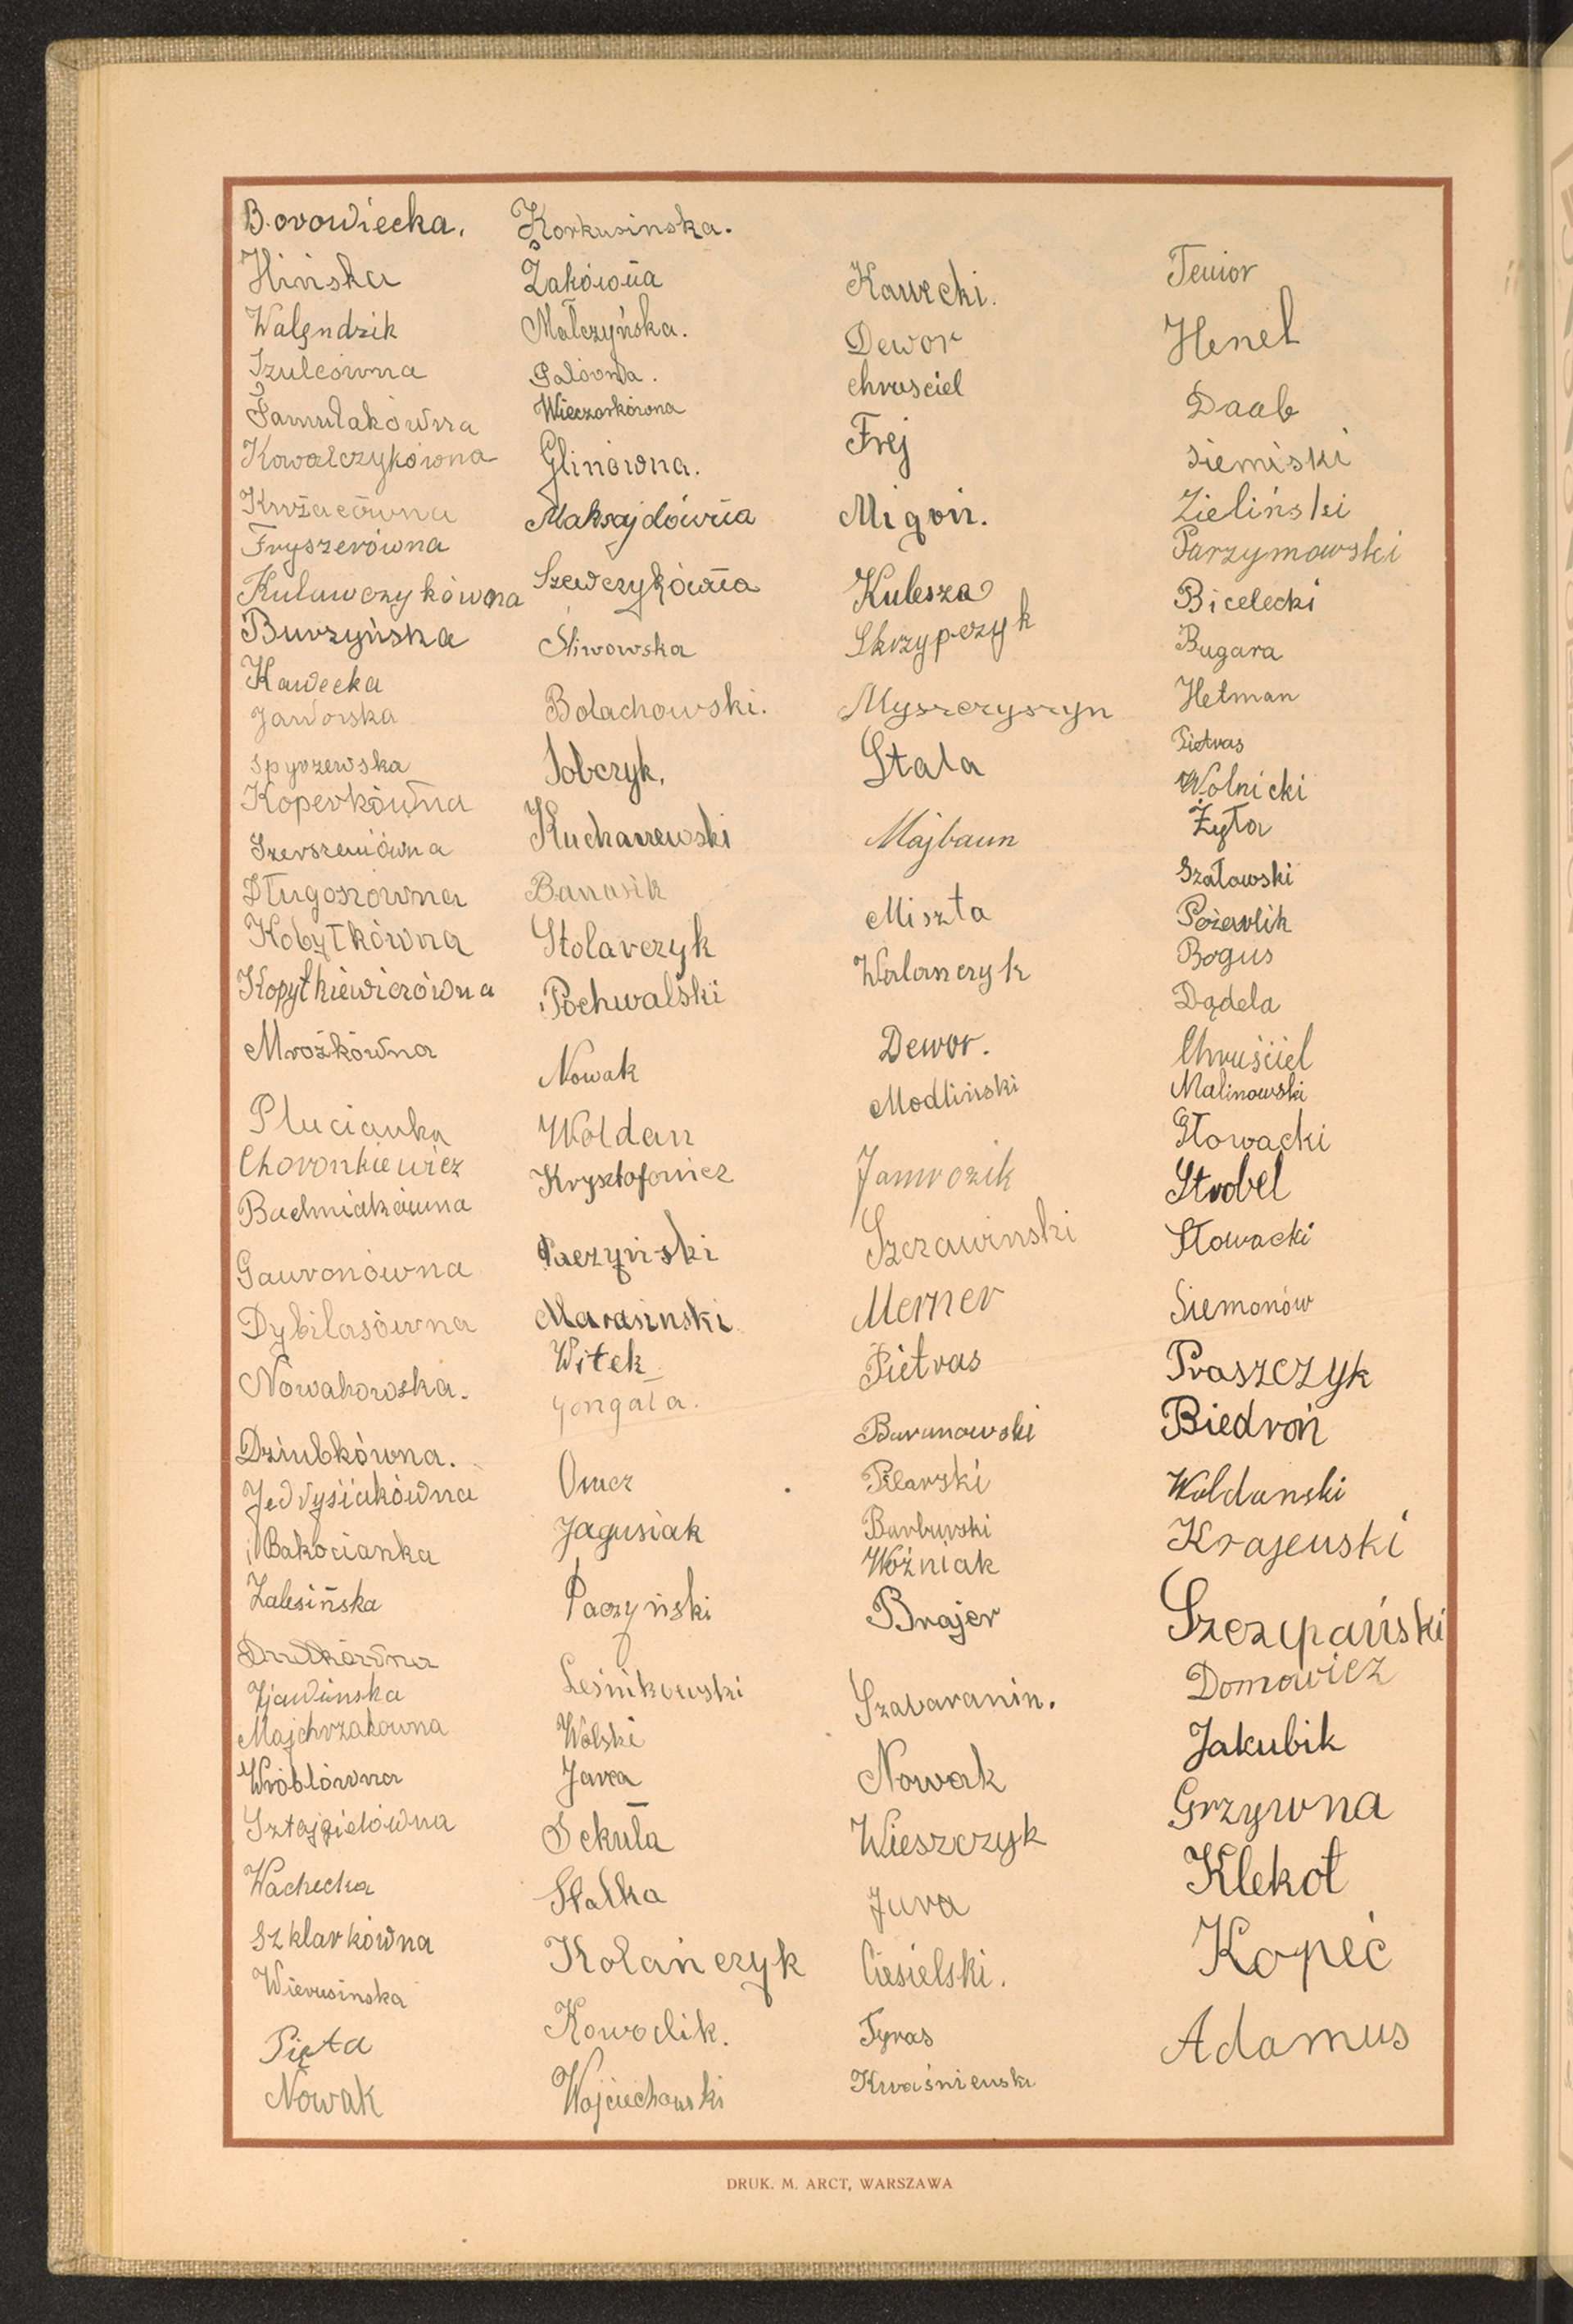 Borowiecka.
Hińska
Walendzik
Szulcówna
Famułakówna
Kowalczykówna
Fryszerówna
Kuławczykówna
Burzyńska
Kawecka
Jaworska
Spyrzewska
Koperkówna
Szerszeniówna
Długoszówna
Kobyłkówna
Kopytkiewiczówna
Mrożkówna
Plucianka
Choronkiewicz
Bachniakówna
Gawronówna
Dybilasówna
Nowakowska.
Dziubkówna.
Jedrysiakówna
Bakocianka
Zalesińska
Drutkówna
Zjawińska
Majchrzakowna
Wróblówna
Wachecka
Szklarkówna
Wierusinska
Pięta
Nowak
Korkusinska.
Żakówna
Małczyńska.
Wieczorkówna
Glinówna.
Maksajdówna
Szewczykówna
Śliwowska
Bolachowski.
Sobczyk.
Kucharzewski
Banasik
Stolarczyk
Pochwalski
Nowak
Woldan
Krysztofowicz
Paczyński
Marasinski
Witek
Gongała.
Jagusiak
Paczyński
Leśnikowski
Wolski
Sekuła
Stalka
Kolańczyk
Kowalik.
Wojciechowski
Kawecki.
Dewor
Chrusciel
Frej
Migoń.
Kulesza
Skrzypczyk
Myszczyszyn
Stala
Majbaum
Miszta
Walanczyk
Dewor.
Modliński
Jamrozik
Szczawinski
Merner
Pietras
Baranowski
Pilarski
Barburski
Woźniak
Brajer
Szabaranin.
Nowak
Wieszczyk
Jura
Ciesielski.
Tyras
Kwaśniewski
Henel
Daab
Siemiski
Zieliński
Parzymowski
Bicelecki
Bugara
Hetman
Pietras
Wolnicki
Żyła
Szałowski
Bogus
Dądela
Chruściel
Malinowski
Głowacki
Strobel
Słowacki
Siemonów
Praszczyk
Biedroń
Woldanski
Krajewski
Szczepański
Domowicz
Jakubik
Grzywna
Klekot
Kopeć
Adamus
DRUK. M. ARCT, WARSZAWA